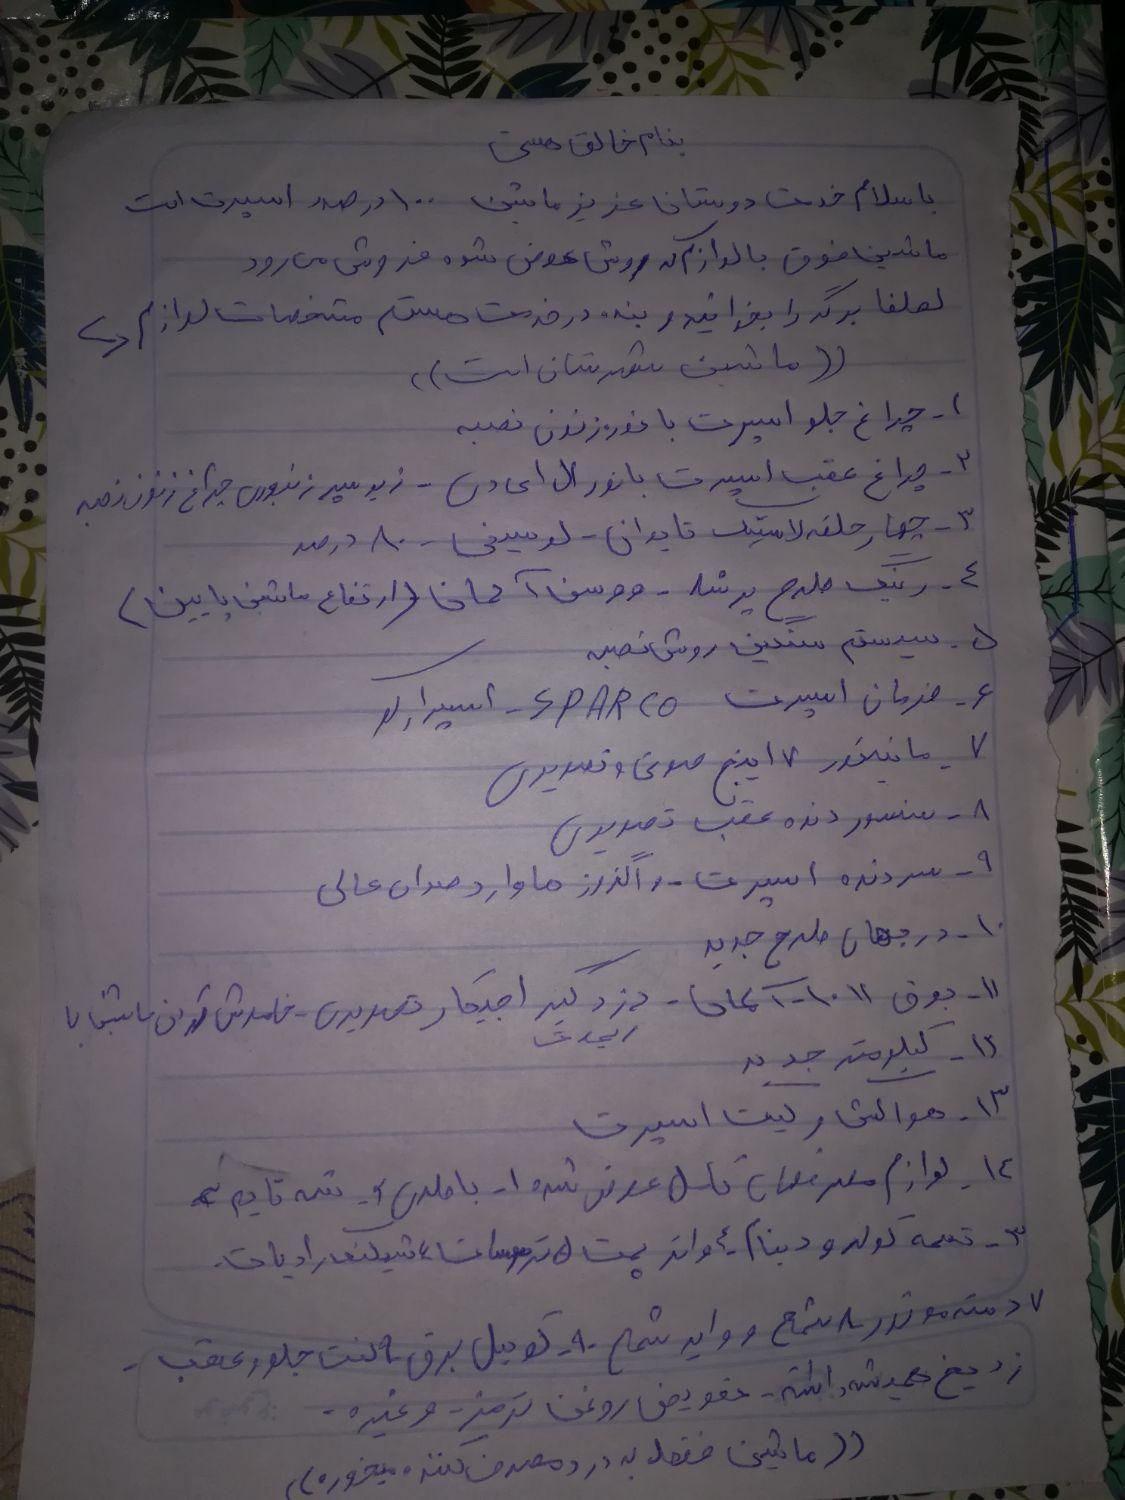 بنام خالق هستی
با سلام خدمت دوستان عزیز ماشین ۱۰۰ درصد اسپرت است
ماشین فوق با لوازم که روش عوض شده فروش می رود
لطفا برگه را بخوانید و بنده در خدمت هستم مشخصات لوازم
((ماشین شهرستان است))
۱- چراغ جلو اسپرت با نور زنون نصبه
۲- چراغ عقب اسپرت با نور ال ای دی - زیر سپر زنبوری چراغ زنون نصبه
۳- چهار حلقه لاستیک تایوانی - لوسینی - ۸۰ درصد
٤- رینگ طرح پرشیا - آلمانی (ارتفاع ماشین پایین)
۵- سیستم سنگین روش نصبه
۶- فرمان اسپرت SPARCO - اسپارکو
۷- مانیتور ۷ اینچ صوتی و تصویری
۸- سنسور دنده عقب تصویری
۹- سردنده اسپرت - و اگزوز صدای عالی
۱۰- طرح جدید
۱۱- بوق آلمانی - دزدگیر تصویری - خاموش کردن ماشین با
ریموت
۱۲- کیلومتر جدید
۱۳- هواکش و کیت اسپرت
۱٤- لوازم مصرفی عوض شده ۱- باطری ۲- تسمه تایم
۳- تسمه کولر و دینام ٤- واتر پمپ ۵ ترموستات ۶ شیلنگ رادیات
۷ دسته موتور ۸ شمع و وایر شمع - کویل برق لنت جلو و عقب -
ضد یخ همیشه داشته - تعویض روغن ترمز - و غیره -
((ماشین فقط به درد مصرف کننده میخوره))